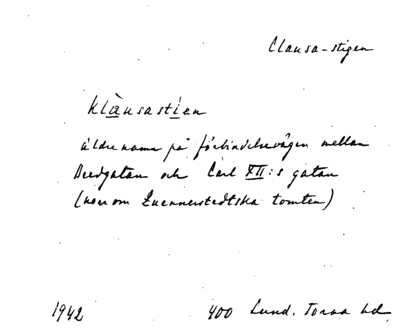 Clausa-stigen
Klàusastien
äldre namn på förbindelsevägen mellan
Bredgatan och Carl XII:s gatan
(norr om Quennerstedtska tomten)
1942 400 Lund. Torna hd